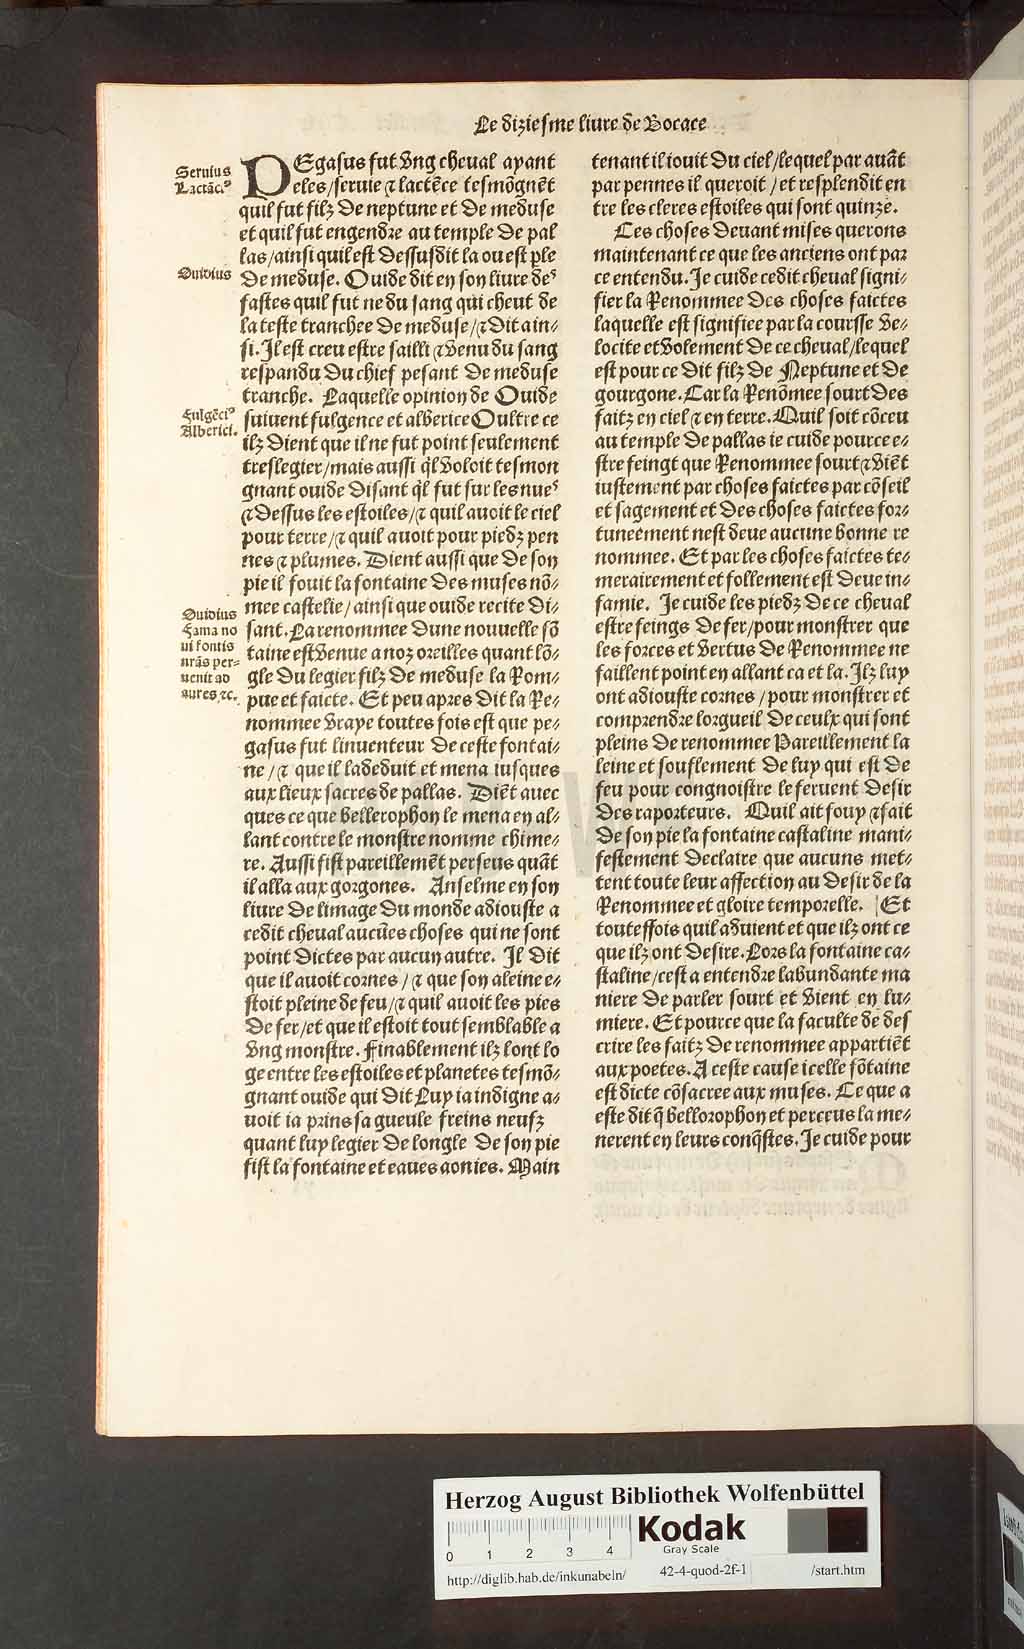 Le diziesme liure de Bocace
Seruius
Lactāci⁹
Ouidius
Fulgēci⁹
Alberici.
Ouidius
Fama no
ui fontis
nrās per⸗
uenit ad
aures ⁊c.
PEgasus fut vng cheval ayant
eles/seruie ⁊ lactēce tesmōgnēt
quil fut filz de neptune et de meduse
et quil fut engendre au temple de pal
las/ainsi quil est dessusdit la ou est ꝑle
de meduse. Ouide dit en son liure des
fastes quil fut ne du sang qui cheut de
la teste tranchee de meduse/⁊ dit ain⸗
si. Il est creu estre sailli ⁊ venu du sang
respandu du chief pesant de meduse
tranche. Laquelle opinion de Ouide
suiuent fulgence et alberice Oultre ce
ilz dient que il ne fut point seulement
treslegier/mais aussi q̄l voloit tesmon
gnant ouide disant q̄l fut sur les nues
⁊ dessus les estoiles/⁊ quil auoit le ciel
pour terre/⁊ quil auoit pour piedz pen
nes ⁊ plumes. Dient aussi que de son
pie il fouit la fontaine des muses nō⸗
mee castelie/ainsi que ouide recite di⸗
sant. La renommee dune nouuelle fō
taine est venue a noz oreilles quant lō⸗
gle du legier filz de meduse la Rom⸗
pue et faicte. Et peu apres dit la Re⸗
nommee vraye toutes fois est que pe⸗
gasus fut linuenteur de ceste fontai⸗
ne/⁊ que il ladeduit et mena iusques
aux lieux sacres de pallas. Diēt auec
ques ce que bellerophon le mena en al⸗
lant contre le monstre nomme chime⸗
re. Aussi fist pareillemēt perseus quāt
il alla aux gorgones. Anselme en son
liure de limage du monde adiouste a
cedit cheual aucūes choses qui ne sont
point dictes par aucun autre. Il dit
que il auoit cornes/⁊ que son aleine e⸗
stoit pleine de feu/⁊ quil auoit les pies
de fer/et que il estoit tout semblable a
vng monstre. Finablement ilz lont lo
ge entre les estoiles et planetes tesmō⸗
gnant ouide qui dit Luy ia indigne a⸗
uoit ia prins sa gueule freins neufz
quant luy legier de longle de son pie
fist la fontaine et eaues aonies. Main
tenant il iouit du ciel/lequel par auāt
par pennes il queroit/et resplendit en
tre les cleres estoiles qui sont quinze.
Ces choses deuant mises querons
maintenant ce que les anciens ont par
ce entendu. Je cuide cedit cheual signi⸗
fier la Renommee des choses faictes
laquelle est signifiee par la coursse ve⸗
locite et volement de ce cheual/lequel
est pour ce dit filz de Neptune et de
gourgone. Car la Renōmee sourt des
faitz en ciel ⁊ en terre. Quil soit cōceu
au temple de pallas ie cuide pource e⸗
stre feingt que Renommee sourt ⁊ viēt
iustement par choses faictes par cōseil
et sagement et des choses faictes for⸗
tuneement nest deue aucune bonne re
nommee. Et par les choses faictes te⸗
merairement et follement est deue in⸗
famie. Je cuide les piedz de ce cheval
estre feings de fer/pour monstrer que
les forces et vertus de Renommee ne
faillent point en allant ca et la. Ilz luy
ont adiouste cornes/pour monstrer et
comprendre lorgueil de ceulx qui sont
pleins de renommee Pareillement la
leine et souflement de luy qui est de
feu pour congnoistre le feruent desir
des raporteurs. Quil ait fouy ⁊ fait
de son pie la fontaine castaline mani⸗
festement declaire que aucuns met⸗
tent toute leur affection au desir de la
Renommee et gloire temporelle. Et
touteffois quil aduient et que ilz ont ce
que ilz ont desire. Lors la fontaine ca⸗
staline/cest a entendre labundante ma
niere de parler sourt et vient en lu⸗
miere. Et pource que la faculte de des
crire les faitz de renommee appartiēt
aux poetes. A ceste cause icelle fōtaine
est dicte cōsacree aux muses. Ce que a
este dit q̄ bellorophon et perceus la me⸗
nerent en leurs conq̄stes. Je cuide pour
Herzog August Bibliothek Wolfenbüttel
Kodak
Gray Scale
0 1 2 3 4
http://diglib.hab.de/inkunabeln/ 42-4-quod-2f-1 /start.htm